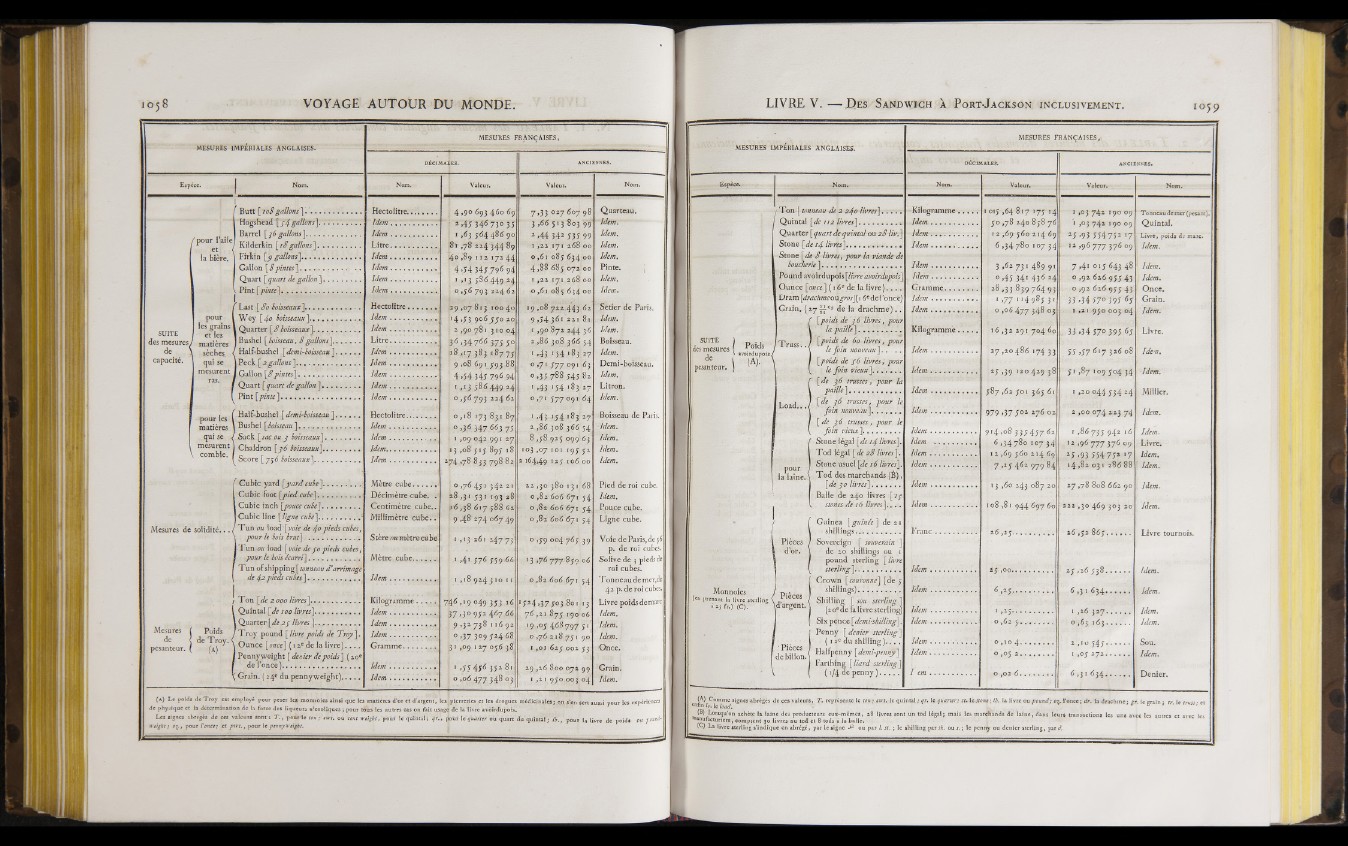 1058 VOYAGE AUTOUR DU MONDE.
MESURES IMPÉRIALES ANGLAISES. MESURES FRANÇAISES,
DÉCIMALES. ANCIENNES.
Espèce. Nom. Nom. Valeur. Valeur. Nom.
SUITE des mesures de capacité.
pour l'aile et la bière.
Butt [108 gallons] Hectolitre 4 ,90 693 460 69 7 ,33 027 607 98 Quarteau.
Hogshead [54 gallons] Idem 2 ,45 346 730 35 3 ,66 513 803 99 Idem.
Barrel [36 gallons] Idem 1 ,63 564 486 90 2 ,44 342 535 99 Idem.
Kilderkin [18 gallons] Litre 81 ,78 224 344 89 1 ,22 171 268 00 Idem.
Firkin [9 gallons] Idem 40 ,89 112 172 44 0 ,61 085 634 00 Idem.
Gallon [8 pintes] Idem 4 ,54 345 796 94 4 ,88 685 072 00 Pinte.
Quart [quart de gallon] Idem 1 ,13 586 449 24 1 ,22 171 268 00 Idem.
Pint [pinte] Idem 0 ,56 793 224 62 0 ,61 085 634 00 Idem.
pour les grains et les matières sèches qui se mesurent ras.
Last [80 boisseaux] Hectolitre 29 ,07 813 100 40 19 ,08 722 443 62 Setier de Paris.
Wey [40 boisseaux] Idem 14 ,53 906 550 20 9 ,54 361 221 81 Idem.
Quarter [8 boisseaux] Idem 2 ,90 781 310 04 1 ,90 872 244 36 Idem.
Bushel [boisseau, 8 gallons] Litre 36 ,34 766 375 50 2 ,86 308 366 54 Boisseau.
Half-bushel [demi-boisseau] Idem 18 ,17 383 187 75 1 ,43 154 183 27 Idem.
Peck [2 gallons] Idem 9 ,08 691 593 88 0 ,71 577 091 63 Demi-boisseau.
Gallon [8 pintes] Idem 4 ,54 345 796 94 0 ,35 788 545 82 Idem.
Quart [quart de gallon] Idem 1 ,13 586 449 24 1 ,43 154 183 27 Litron.
Pint [pinte] Idem 0 ,56 793 224 62 0 ,71 577 091 64 Idem.
pour les matières qui se mesurent comble.
Half-bushel [demi-boisseau] Hectolitre 0 ,18 173 831 87 1 ,43 154 183 27 Boisseau de Paris.
Bushel [boisseau] Idem 0 ,36 347 663 75 2 ,86 308 366 54 Idem.
Sack [sac ou 3 boisseaux] Idem 1 ,09 042 991 27 8 ,58 925 099 63 Idem.
Chaldron [36 boisseaux] Idem 13 ,08 515 895 18 103 ,07 101 195 52 Idem.
Score [756 boisseaux] Idem 274 ,78 833 798 82 2 164,49 125 106 00 Idem.
Mesures de solidité.
Cubic yard [yard cube] Mètre cube 0 ,76 451 342 21 22 ,30 380 131 68 Pied de roi cube.
Cubic foot [pied cube] Décimètre cube 28 ,31 531 193 28 0 ,82 606 671 54 Idem.
Cubic inch [pouce cube] Centimètre cube 16 ,38 617 588 62 0 ,82 606 671 54 Pouce cube.
Cubic line [ligne cube] Millimètre cube 9 ,48 274 067 49 0 ,82 606 671 54 Ligne cube.
Tun ou load [voie de 40 pieds cubes, pour le bois brut] Stère ou mètre cube 1 ,13 261 247 73 0 ,59 004 765 39 Voie de Paris, de 56 p. de roi cubes.
Tun ou load [voie de 50 pieds cubes, pour le bois écarri] Mètre cube 1 ,41 576 559 66 13 ,76 777 859 06 Solive de 3 pieds de roi cubes.
Tun of shipping [tonneau d'arrimage de 42 pieds cubes] Idem 1 ,18 924 310 11 0 ,82 606 671 54 Tonneau de mer, de 42 p. de roi cubes.
Mesures de pesanteur. Poids de Troy. (A)
Ton [de 2 000 livres] Kilogramme 746 ,19 049 353 16 1524 ,37 503 801 13 Livre poids de marc.
Quintal [de 100 livres] Idem 37 ,30 952 467 66 76 ,21 875 190 06 Idem.
Quarter [de 25 livres] Idem 9 ,32 738 116 92 19 ,05 468 797 51 Idem.
Troy pound [livre poids de Troy] Idem 0 ,37 309 524 68 0 ,76 218 751 90 Idem.
Ounce [once] (12e de la livre) Gramme 31 ,09 127 056 38 1 ,01 625 002 53 Once.
Pennyweight [denier de poids] (20e de l'once) Idem 1 ,55 456 352 81 29 ,26 800 072 99 Grain.
Grain. (24e du pennyweight) Idem 0 ,06 477 348 03 1 ,21 950 003 04 Idem.
(A) Le poids de Troy est employé pour peser les monnaies ainsi que les matières d'or et d'argent, les pierreries et les drogues médicinales; on s'en sert aussi pour les expériences
de physique et la détermination de la force des liqueurs alcooliques; pour tous les autres cas on fait usage de la livre avoirdupois.
Les signes abrégés de ces valeurs sont: T., pour le ton; cwt. ou cent weight, pour le quintal; qr., pour le quarter ou quart du quintal; lb., pour la livre de poids ou pound-
weight; oz., pour l'once; et pwt., pour le pennyweight.
LIVRE V. — DES SANDWICH À PORT-JACKSON INCLUSIVEMENT. 1059
MESURES IMPÉRIALES ANGLAISES. MESURES FRANÇAISES,
DÉCIMALES. ANCIENNES.
Espèce. Nom. Nom. Valeur. Valeur. Nom.
SUITE des mesures de pesanteur. Poids avoirdupois (A).
Ton [tonneau de 2 240 livres] Kilogramme 1 015 ,64 817 175 14 1 ,03 742 190 09 Tonneau de mer (pesant).
Quintal [de 112 livres] Idem 50 ,78 240 858 76 1 ,03 742 190 09 Quintal.
Quarter [quart de quintal ou 28 liv.] Idem 12 ,69 560 214 69 25 ,93 554 752 17 Livre, poids de marc.
Stone [de 14 livres] Idem 6 ,34 780 107 34 12 ,96 777 376 09 Idem.
Stone [de 8 livres, pour la viande de boucherie] Idem 3 ,62 731 489 91 7 ,41 015 643 48 Idem.
Pound avoirdupois [livre avoirdupois] Idem 0 ,45 341 436 24 0 ,92 626 955 43 Idem.
Ounce [once] (16e de la livre) Gramme 28 ,33 839 764 93 0 ,92 626 955 43 Once.
Dram [drachme ou gros] (16e de l'once) Idem 1 ,77 114 985 31 33 ,34 570 395 65 Grain.
Grain, (27 11/32e de la drachme) Idem 0 ,06 477 348 03 1 ,21 950 003 04 Idem.
Truss.
[poids de 36 livres, pour la paille] Kilogramme 16 ,32 291 704 60 33 ,34 570 395 65 Livre.
[poids de 60 livres, pour le foin nouveau] Idem 27 ,20 486 174 33 55 ,57 617 326 08 Idem.
[poids de 56 livres, pour le foin vieux] Idem 25 ,39 120 429 38 51 ,87 109 504 34 Idem.
Load.
[de 36 trusses, pour la paille] Idem 587 ,62 501 365 61 1 ,20 044 534 24 Millier.
[de 36 trusses, pour le foin nouveau] Idem 979 ,37 502 276 02 2 ,00 074 223 74 Idem.
[de 36 trusses, pour le foin vieux] Idem 914 ,08 335 457 62 1 ,86 735 942 16 Idem.
pour la laine.
Stone légal [de 14 livres] Idem 6 ,34 780 107 34 12 ,96 777 376 09 Livre.
Tod légal [de 28 livres] Idem 12 ,69 560 214 69 25 ,93 554 752 17 Idem.
Stone usuel [de 16 livres] Idem 7 ,25 462 979 84 14 ,82 031 286 88 Idem.
Tod des marchands (B), [de 30 livres] Idem 13 ,60 243 087 20 27 ,78 808 662 90 Idem.
Balle de 240 livres [15 stones de 16 livres] Idem 108 ,81 944 697 60 222 ,30 469 303 20 Idem.
Monnoies [en prenant la livre sterling à 25 fr.] (C).
Pièces d'or.
Guinea [guinée] de 21 shillings Franc 26 ,25 26 ,52 865 Livre tournois.
Sovereign [souverain] de 20 shillings ou 1 pound sterling [livre sterling] Idem 25 ,00 25 ,26 538 Idem.
Pièces d'argent.
Crown [couronne] [de 5 shillings) Idem 6 ,25 6 ,31 634 Idem.
Shilling [sou sterling] [20e de la livre sterling] Idem 1 ,25 1 ,26 327 Idem.
Six pence [demi-shilling] Idem 0 ,62 5 0 ,63 163 Idem.
Pièces de billon.
Penny [denier sterling] (12e du shilling) Idem 0 ,10 4 2 ,10 545 Sou.
Halfpenny [demi-penny] Idem 0 ,05 2 1 ,05 272 Idem.
Farthing [liard sterling] (1/4 de penny) Idem 0 ,02 6 6 ,31 634 Denier.
(A) Comme signes abrégés de ces valeurs,
(B) Lorsqu'on achète la laine des producteurs eux-mêmes, 28 livres sont un tod légal; mais les marchands de laine, dans leurs transactions les uns avec les autres et avec les
manufacturiers, comptent 30 livres au tod et 8 tods à la balle.
(C) La livre sterling s'indique en abrégé, par le signe £ ou par l. st.; le shilling par sh. ou s.; le penny ou denier sterling, par d.